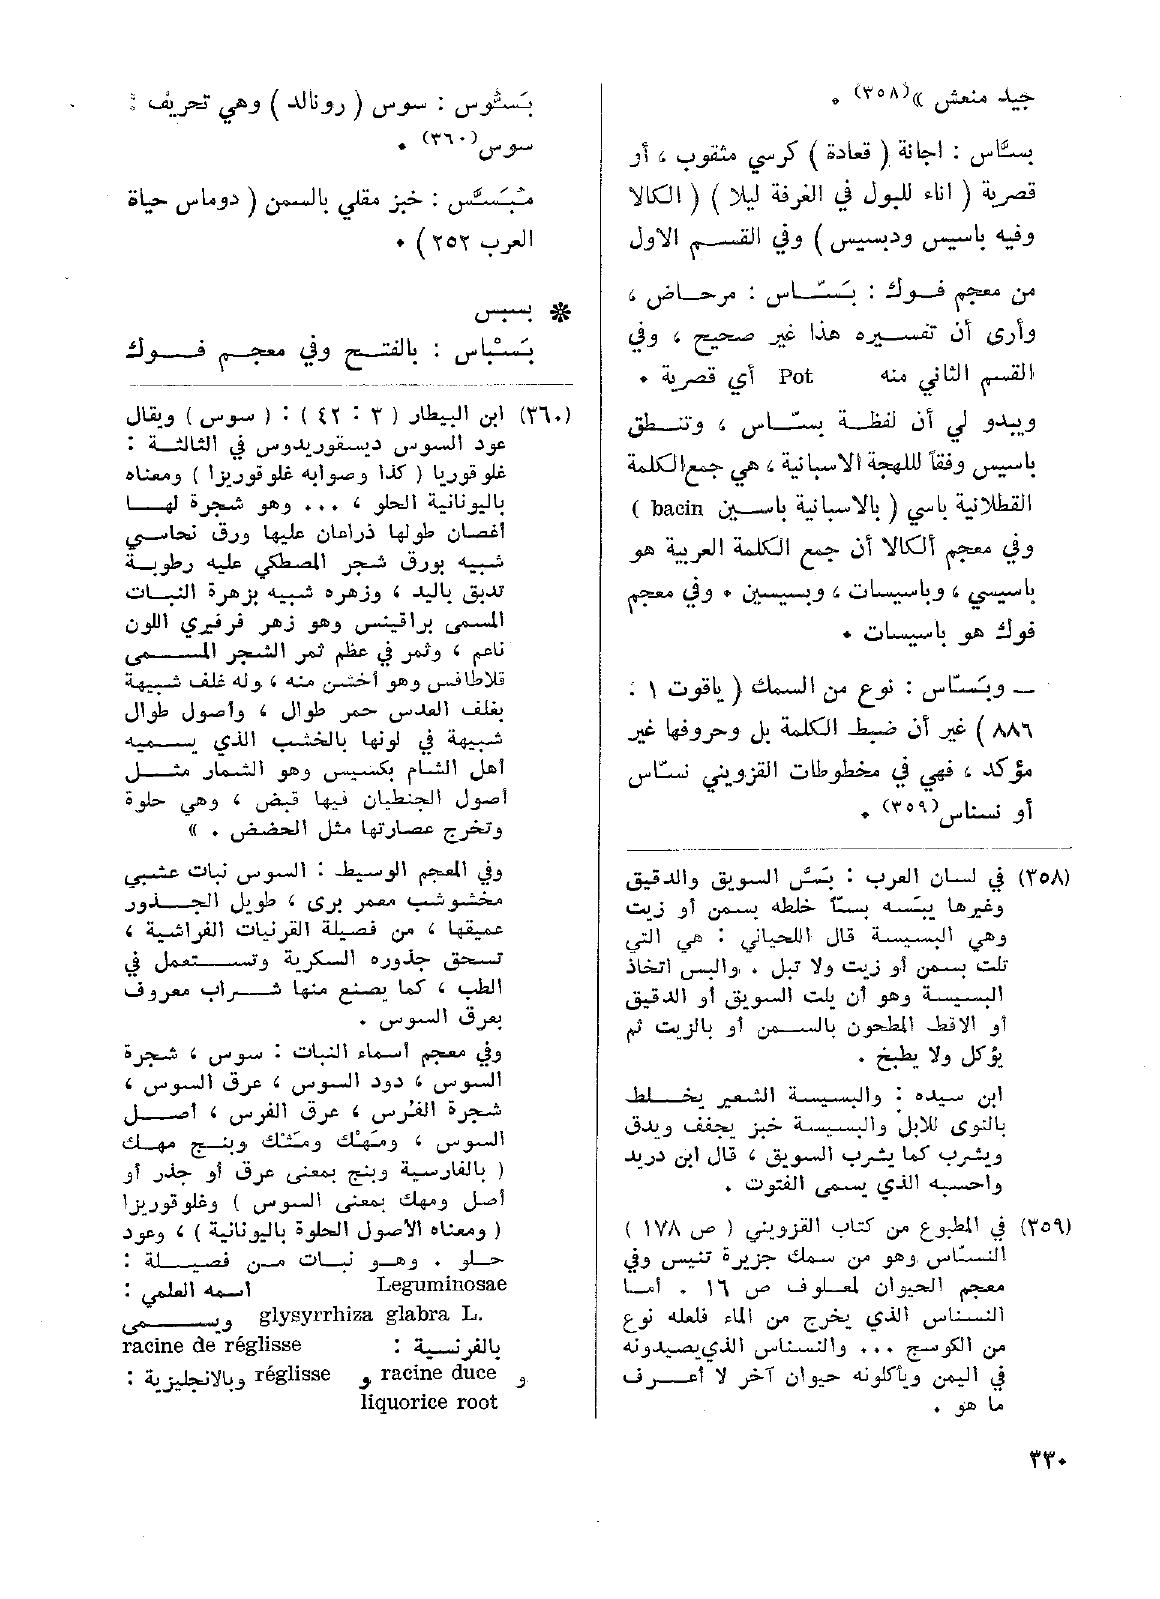 جيد منعش »(٣٥٨) ٠
بسّاس : اجانة ( قعادة ) كرسي مثقوب ، أو
قصرية ( اناء للبول في الغرفة ليلا ) ( الكالا
وفيه باسيس ودبسيس ) وفي القسم الاول
من معجم فوك : بَسّاس : مرحاض ،
وأرى أن تفسيره هذا غير صحيح ، وفي
القسم الثاني منه Pot أي قصرية ٠
ويبدو لي أن لفظة بسّاس ، وتنطق
باسيس وفقاً للهجة الاسبانية ، هي جمع الكلمة
القطلانية باسي ( بالاسبانية باسين bacin )
وفي معجم ألكالا أن جمع الكلمة العربية هو
باسيسي ، وباسيسات ، وبسيسين ٠ وفي معجم
فوك هو باسيسات ٠
— وبَسّاس : نوع من السمك ( ياقوت ١ :
٨٨٦ ) غير أن ضبط الكلمة بل وحروفها غير
مؤكد ، فهي في مخطوطات القزويني نسّاس
أو نسناس(٣٥٩) ٠
(٣٥٨) في لسان العرب : بَسَّ السويق والدقيق
وغيرها يبُسه بسّاً خلطه بسمن أو زيت
وهي البسيسة قال اللحياني : هي التي
تلت بسمن أو زيت ولا تبل ٠ والبس اتخاذ
البسيسة وهو أن يلت السويق أو الدقيق
أو الاقط المطحون بالسمن أو بالزيت ثم
يؤكل ولا يطبخ ٠
ابن سيده : والبسيسة الشعير يخلط
بالنوى للابل والبسيسة خبز يجفف ويدق
ويشرب كما يشرب السويق ، قال ابن دريد
واحسبه الذي يسمى الفتوت ٠
(٣٥٩) في المطبوع من كتاب القزويني ( ص ١٧٨ )
النسّاس وهو من سمك جزيرة تنيس وفي
معجم الحيوان لمعلوف ص ١٦ ٠ أما
النسناس الذي يخرج من الماء فلعله نوع
من الكوسج ٠٠٠ والنسناس الذي يصيدونه
في اليمن ويأكلونه حيوان آخر لا أعرف
ما هو ٠
بَسُّوس : سوس ( رونالد ) وهي تحريف :
سوس(٣٦٠) ٠
مُبَسَّس : خبز مقلي بالسمن ( دوماس حياة
العرب ٢٥٢ ) ٠
❊ بسبس
بَسْباس : بالفتح وفي معجم فوك
(٣٦٠) ابن البيطار ( ٣ : ٤٢ ) : ( سوس ) ويقال
عود السوس ديسقوريدوس في الثالثة :
غلوقوريا ( كذا وصوابه غلوقوريزا ) ومعناه
باليونانية الحلو ، ٠٠٠ وهو شجرة لها
أغصان طولها ذراعان عليها ورق نحاسي
شبيه بورق شجر المصطكي عليه رطوبة
تدبق باليد ، وزهره شبيه بزهرة النبات
المسمى براقينس وهو زهر فرفيري اللون
ناعم ، وثمر في عظم ثمر الشجر المسمى
قلاطافس وهو أخشن منه ، وله غلف شبيهة
بغلف العدس حمر طوال ، وأصول طوال
شبيهة في لونها بالخشب الذي يسميه
أهل الشام بكسيس وهو الشمار مثل
أصول الجنطيان فيها قبض ، وهي حلوة
وتخرج عصارتها مثل الحضض ٠ »
وفي المعجم الوسيط : السوس نبات عشبي
مخشوشب معمر بري ، طويل الجذور
عميقها ، من فصيلة القرنيات الفراشية ،
تسحق جذوره السكرية وتستعمل في
الطب ، كما يصنع منها شراب معروف
بعرق السوس ٠
وفي معجم أسماء النبات : سوس ، شجرة
السوس ، دود السوس ، عرق السوس ،
شجرة الفرس ، عرق الفرس ، أصل
السوس ، ومَهْك ومَتْك وبنج مهك
( بالفارسية وبنج بمعنى عرق أو جذر أو
أصل ومهك بمعنى السوس ) وغلوقوريزا
( ومعناه الاصول الحلوة باليونانية ) ، وعود
حلو ٠ وهو نبات من فصيلة :
Leguminosae اسمه العلمي :
glysyrrhiza glabra L. ويسمى
بالفرنسية : racine de réglisse
و racine duce و réglisse وبالانجليزية :
liquorice root
٣٣٠